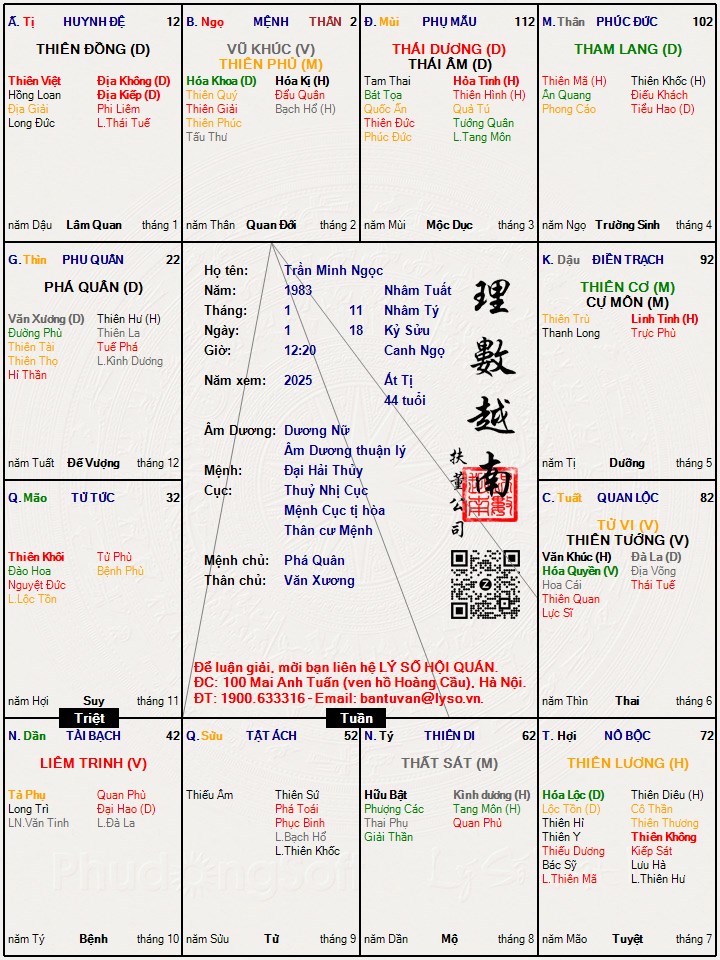 Ấ. Tị HUYNH ĐỆ 12
THIÊN ĐỒNG (D)
Thiên Việt Địa Không (D)
Hồng Loan Địa Kiếp (D)
Địa Giải Phi Liêm
Long Đức L.Thái Tuế
năm Dậu Lâm Quan tháng 1
B. Ngọ MỆNH THÂN 2
VŨ KHÚC (V)
THIÊN PHỦ (M)
Hóa Khoa (D) Hóa Kị (H)
Thiên Quý Đẩu Quân
Thiên Giải Bạch Hổ (H)
Thiên Phúc
Tấu Thư
năm Thân Quan Đới tháng 2
Đ. Mùi PHỤ MẪU 112
THÁI DƯƠNG (D)
THÁI ÂM (D)
Tam Thai Hỏa Tinh (H)
Bát Tọa Thiên Hình (H)
Quốc Ấn Quả Tú
Thiên Đức Tướng Quân
Phúc Đức L.Tang Môn
năm Mùi Mộc Dục tháng 3
M. Thân PHÚC ĐỨC 102
THAM LANG (D)
Thiên Mã (H) Thiên Khốc (H)
Ân Quang Điếu Khách
Phong Cáo Tiểu Hao (D)
năm Ngọ Trường Sinh tháng 4
G. Thìn PHU QUÂN 22
PHÁ QUÂN (D)
Văn Xương (D) Thiên Hư (H)
Đường Phù Thiên La
Thiên Tài Tuế Phá
Thiên Thọ L.Kình Dương
Hỉ Thần
năm Tuất Đế Vượng tháng 12
Họ tên: Trần Minh Ngọc
Năm: 1983 Nhâm Tuất
Tháng: 1 11 Nhâm Tý
Ngày: 1 18 Kỷ Sửu
Giờ: 12:20 Canh Ngọ
Năm xem: 2025 Ất Tị
44 tuổi
Âm Dương: Dương Nữ
Âm Dương thuận lý
Mệnh: Đại Hải Thủy
Cục: Thuỷ Nhị Cục
Mệnh Cục tị hòa
Thân cư Mệnh
Mệnh chủ: Phá Quân
Thân chủ: Văn Xương
理數越南
扶董公司
Để luận giải, mời bạn liên hệ LÝ SỐ HỘI QUÁN.
ĐC: 100 Mai Anh Tuấn (ven hồ Hoàng Cầu), Hà Nội.
ĐT: 1900.633316 - Email: bantuvan@lyso.vn.
K. Dậu ĐIỀN TRẠCH 92
THIÊN CƠ (M)
CỰ MÔN (M)
Thiên Trù Linh Tinh (H)
Thanh Long Trực Phù
năm Tị Dưỡng tháng 5
Q. Mão TỬ TỨC 32
Thiên Khôi Tử Phù
Đào Hoa Bệnh Phù
Nguyệt Đức
L.Lộc Tồn
năm Hợi Suy tháng 11
C. Tuất QUAN LỘC 82
TỬ VI (V)
THIÊN TƯỚNG (V)
Văn Khúc (H) Đà La (D)
Hóa Quyền (V) Địa Võng
Hoa Cái Thái Tuế
Thiên Quan
Lực Sĩ
năm Thìn Thai tháng 6
Triệt
Tuần
N. Dần TÀI BẠCH 42
LIÊM TRINH (V)
Tả Phụ Quan Phù
Long Trì Đại Hao (D)
LN.Văn Tinh L.Đà La
năm Tý Bệnh tháng 10
Q. Sửu TẬT ÁCH 52
Thiếu Âm Thiên Sứ
Phá Toái
Phục Binh
L.Bạch Hổ
L.Thiên Khốc
năm Sửu Tử tháng 9
N. Tý THIÊN DI 62
THẤT SÁT (M)
Hữu Bật Kình dương (H)
Phượng Các Tang Môn (H)
Thai Phụ Quan Phủ
Giải Thần
năm Dần Mộ tháng 8
T. Hợi NÔ BỘC 72
THIÊN LƯƠNG (H)
Hóa Lộc (D) Thiên Diêu (H)
Lộc Tồn (D) Cô Thần
Thiên Hỉ Thiên Thương
Thiên Y Thiên Không
Thiếu Dương Kiếp Sát
Bác Sỹ Lưu Hà
L.Thiên Mã L.Thiên Hư
năm Mão Tuyệt tháng 7